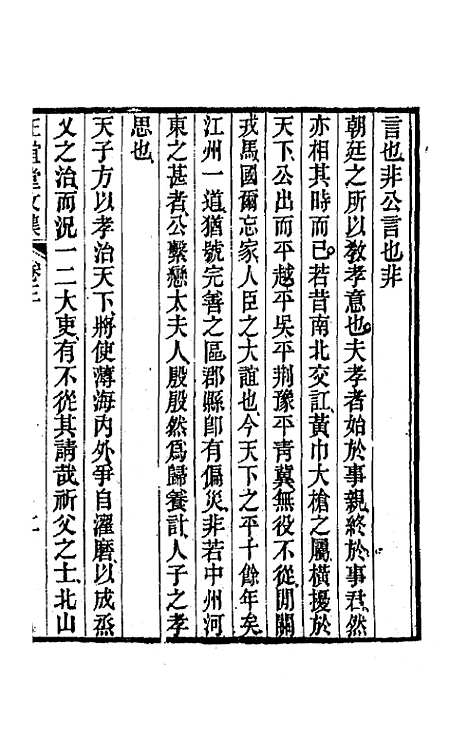 言也非公言也非
朝廷之所以敎孝意也夫孝者始於事親終於事君然
亦相其時而已若昔南北交訌黃巾大槍之屬橫擾於
天下公出而平越平吳平荆豫平青冀無役不從閒關
戎馬國爾忘家人臣之大誼也今天下之平十餘年矣
江州一道猶號完善之區郡縣卽有偏災非若中州河
東之甚者公繫戀太夫人殷殷然爲歸養計人子之孝
思也
天子方以孝治天下將使薄海內外爭自濯磨以成烝
乂之治而況一二大吏有不從其請哉祈父之士北山
正誼堂文集
卷二